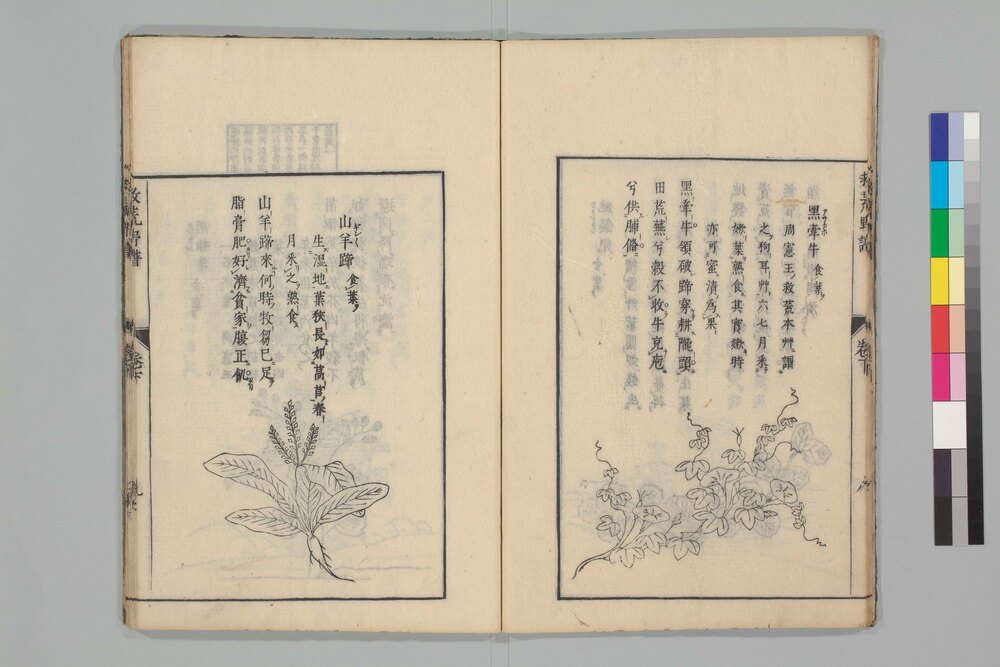 黑牽牛 食葉
周憲王救荒本艸謂
之狗耳艸六七月采
嫩葉熟食其實嫩時
亦可蜜漬為果
黑牽牛領破蹄穿耕隴頭
田荒蕪兮穀不收牛克庖
兮供脯脩
山羊蹄 食葉
生濕地葉狹長如萵苣春
月采之熟食
山羊蹄來何時牧芻已足
脂膏肥好濟貧家腹正飢